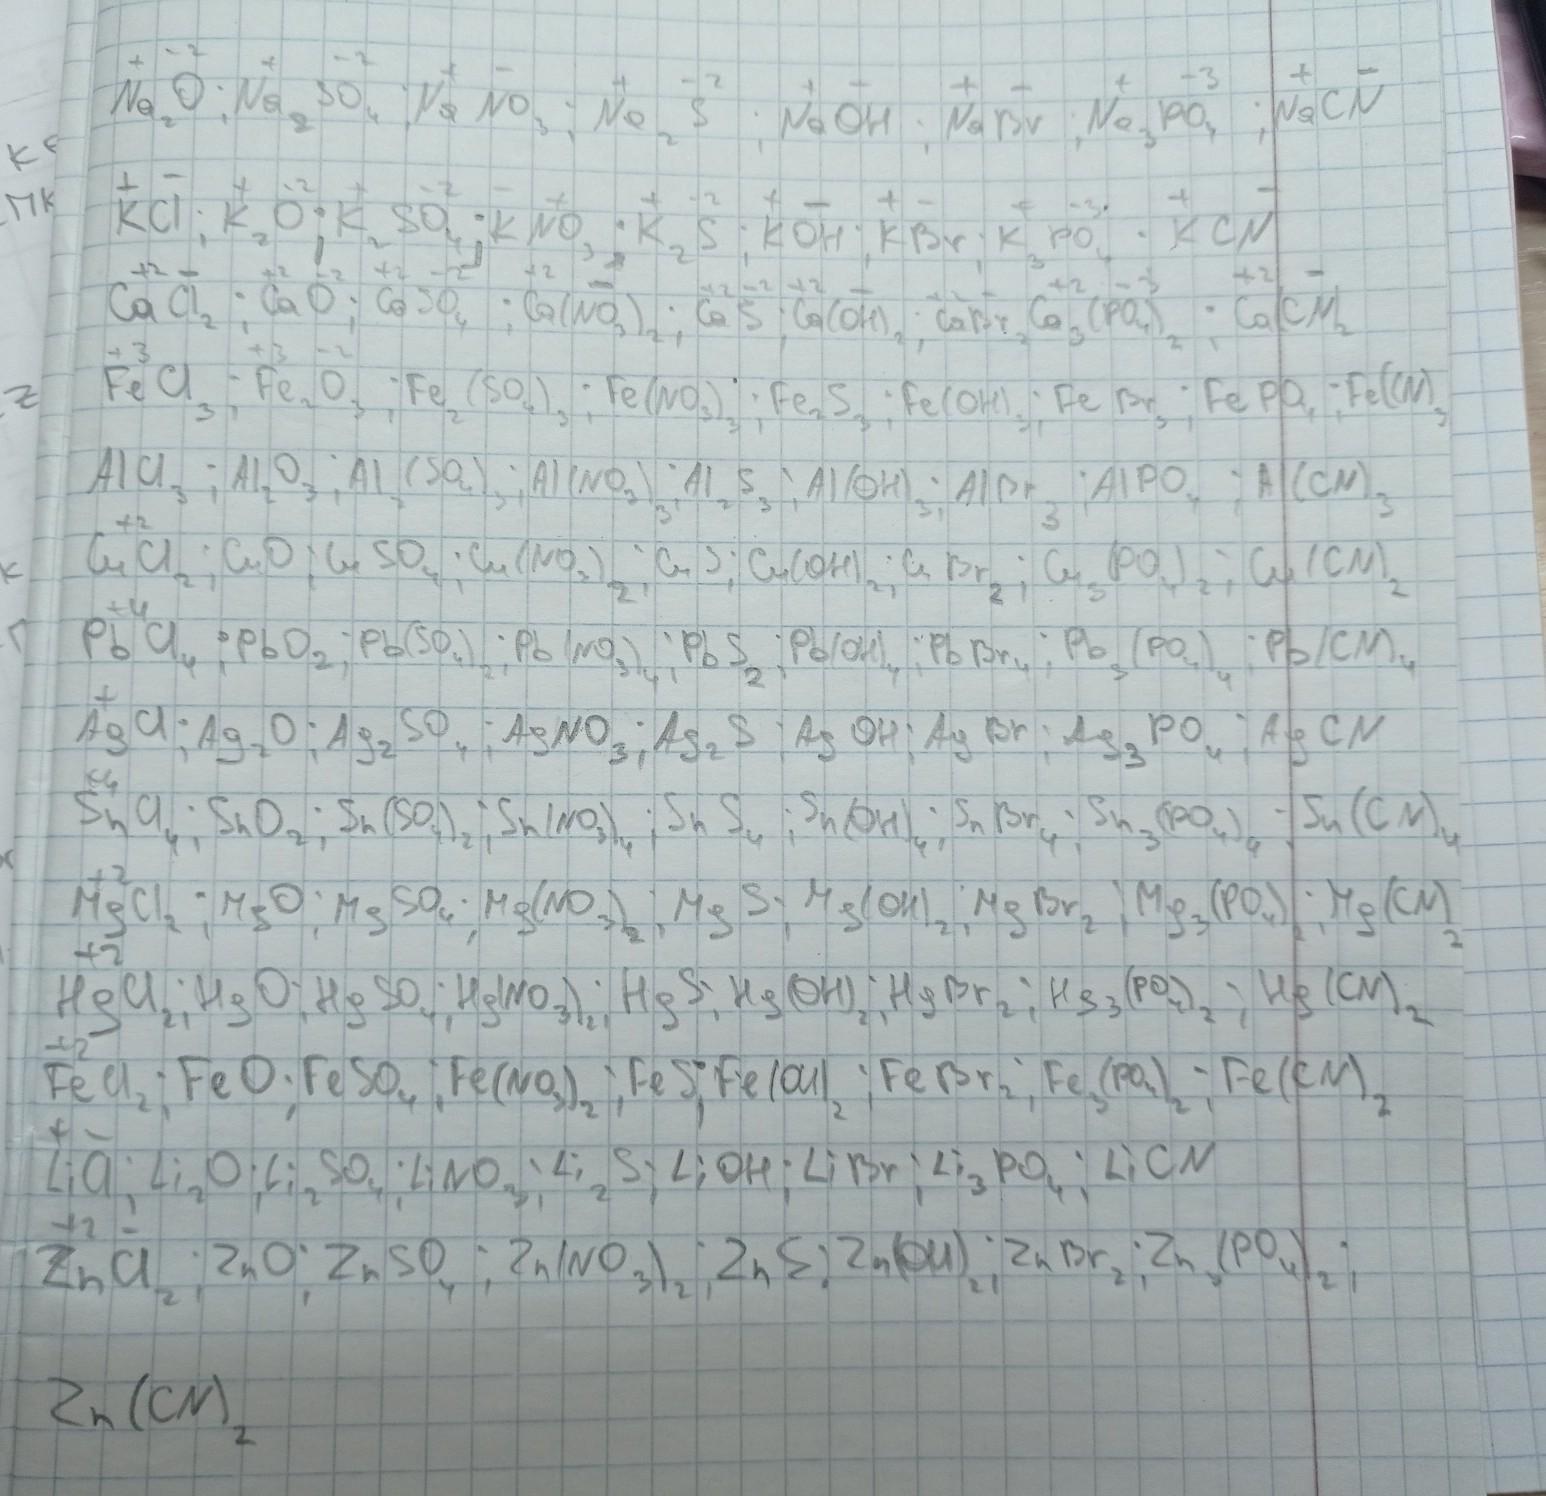 Na₂⁺O⁻²; Na₂⁺SO₄⁻²; Na⁺NO₃⁻; Na₂⁺S⁻²; Na⁺OH⁻; Na⁺Br⁻; Na₃⁺PO₄⁻³; Na⁺CN⁻
K⁺Cl⁻; K₂⁺O⁻²; K₂⁺SO₄⁻²; K⁻NO₃⁺; K₂⁺S⁻²; K⁺OH⁻; K⁺Br⁻; K₃⁺PO₄⁻³; K⁺CN⁻
Ca⁺²Cl₂⁻; Ca⁺²O⁻²; Ca⁺²SO₄⁻²; Ca⁺²(NO₃)₂⁻; Ca⁺²S⁻²; Ca⁺²(OH)₂⁻; Ca⁺²Br₂⁻ Ca₃⁺²(PO₄)₂⁻³; Ca⁺²(CN⁻₂
Fe⁺³Cl₃; Fe₂⁺³O₃⁻²; Fe₂(SO₄)₃; Fe(NO₃)₃; Fe₂S₃; Fe(OH)₃; FeBr₃; FePO₄; Fe(CN)₃
AlCl₃; Al₂O₃; Al₂(SO₄)₃; Al(NO₃)₃; Al₂S₃; Al(OH)₃; AlBr₃; AlPO₄; Al(CN)₃
Cu⁺²Cl₂; CuO; CuSO₄; Cu(NO₃)₂; CuS; Cu(OH)₂; CuBr₂; Cu₃(PO₄)₂; Cu(CN)₂
Pb⁺⁴Cl₄; PbO₂; Pb(SO₄)₂; Pb(NO₃)₄; PbS₂; Pb(OH)₄; PbBr₄; Pb₃(PO₄)₄; Pb(CN)₄
Ag⁺Cl; Ag₂O; Ag₂SO₄; AgNO₃; Ag₂S; AgOH; AgBr; Ag₃PO₄; AgCN
Sn⁺⁴Cl₄; SnO₂; Sn(SO₄)₂; Sn(NO₃)₄; SnS₄; Sn(OH)₄; SnBr₄; Sn₃(PO₄)₄; Sn(CN)₄
Mg⁺²Cl₂; MgO; MgSO₄; Mg(NO₃)₂; MgS; Mg(OH)₂; MgBr₂; Mg₃(PO₄)₂; Mg(CN)₂
Hg⁺²Cl₂; HgO; HgSO₄; Hg(NO₃)₂; HgS; Hg(OH)₂; HgBr₂; Hg₃(PO₄)₂; Hg(CN)₂
Fe⁺²Cl₂; FeO; FeSO₄; Fe(NO₃)₂; FeS; Fe(OH)₂; FeBr₂; Fe₃(PO₄)₂; Fe(CN)₂
Li⁺Cl⁻; Li₂O; Li₂SO₄; LiNO₃; Li₂S; LiOH; LiBr; Li₃PO₄; LiCN
Zn⁺²Cl₂⁻; ZnO; ZnSO₄; Zn(NO₃)₂; ZnS; Zn(OH)₂; ZnBr₂; Zn₃(PO₄)₂;
Zn(CN)₂